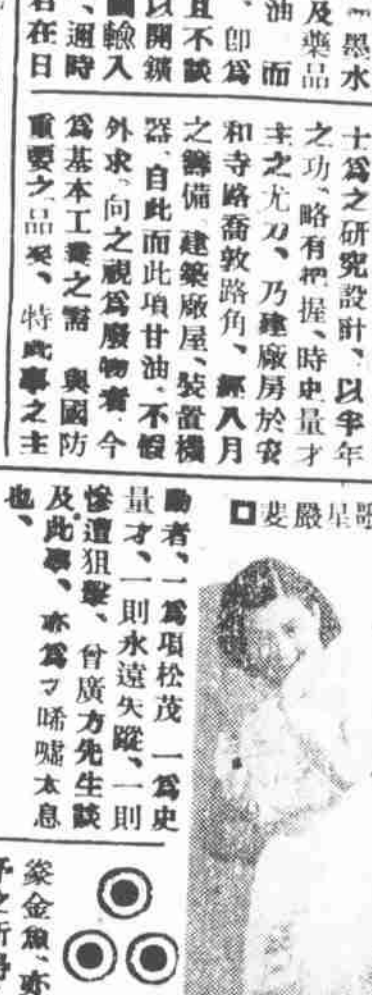 墨水
及藥品
油、而
、卽爲
且不談
以開鑛
輸入
、邇時
若在日
十爲之研究設計、以半年
之功、略有把握、時史量才
主之尤力、乃建廠房於安
和寺路喬敦路角、經八月
之籌備、建築廠屋、裝置機
器、自此而此項甘油、不假
外求、向之視爲廢物者、今
爲基本工業之需、與國防
重要之品矣、特此事之主
歌星嚴斐
動者、一爲項松茂、一爲史
量才、一則永遠失蹤、一則
慘遭狙擊、曾廣方先生談
及此事、亦爲之唏噓太息
也、
金魚、亦